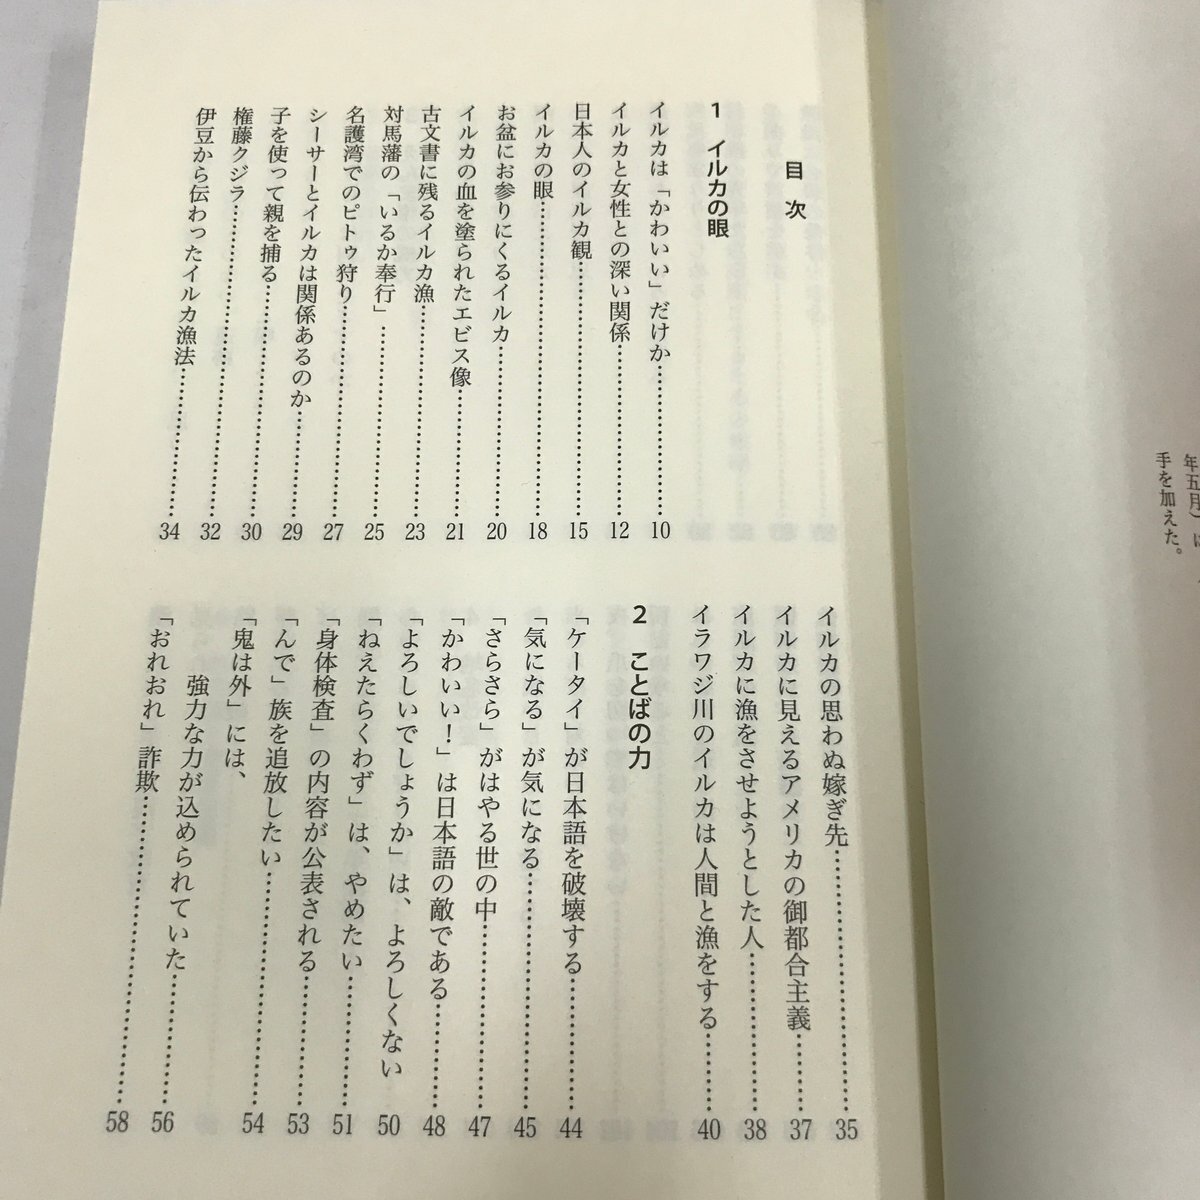 年五月）に
手を加えた。
目次
1 イルカの眼
イルカは「かわいい」だけか………………10
イルカと女性との深い関係………………12
日本人のイルカ観………………15
イルカの眼………………18
お盆にお参りにくるイルカ………………20
イルカの血を塗られたエビス像………………21
古文書に残るイルカ漁………………23
対馬藩の「いるか奉行」………………25
名護湾でのピトゥ狩り………………27
シーサーとイルカは関係あるのか………………29
子を使って親を捕る………………30
権藤クジラ………………32
伊豆から伝わったイルカ漁法………………34
イルカの思わぬ嫁ぎ先………………35
イルカに見えるアメリカの御都合主義………………37
イルカに漁をさせようとした人………………38
イラワジ川のイルカは人間と漁をする………………40
2 ことばの力
「ケータイ」が日本語を破壊する………………44
「気になる」が気になる………………45
「さらさら」がはやる世の中………………47
「かわいい！」は日本語の敵である………………48
「よろしいでしょうか」は、よろしくない 50
「ねえたらくわず」は、やめたい………………51
「身体検査」の内容が公表される………………53
「んで」族を追放したい………………54
「鬼は外」には、
強力な力が込められていた………………56
「おれおれ」詐欺………………58